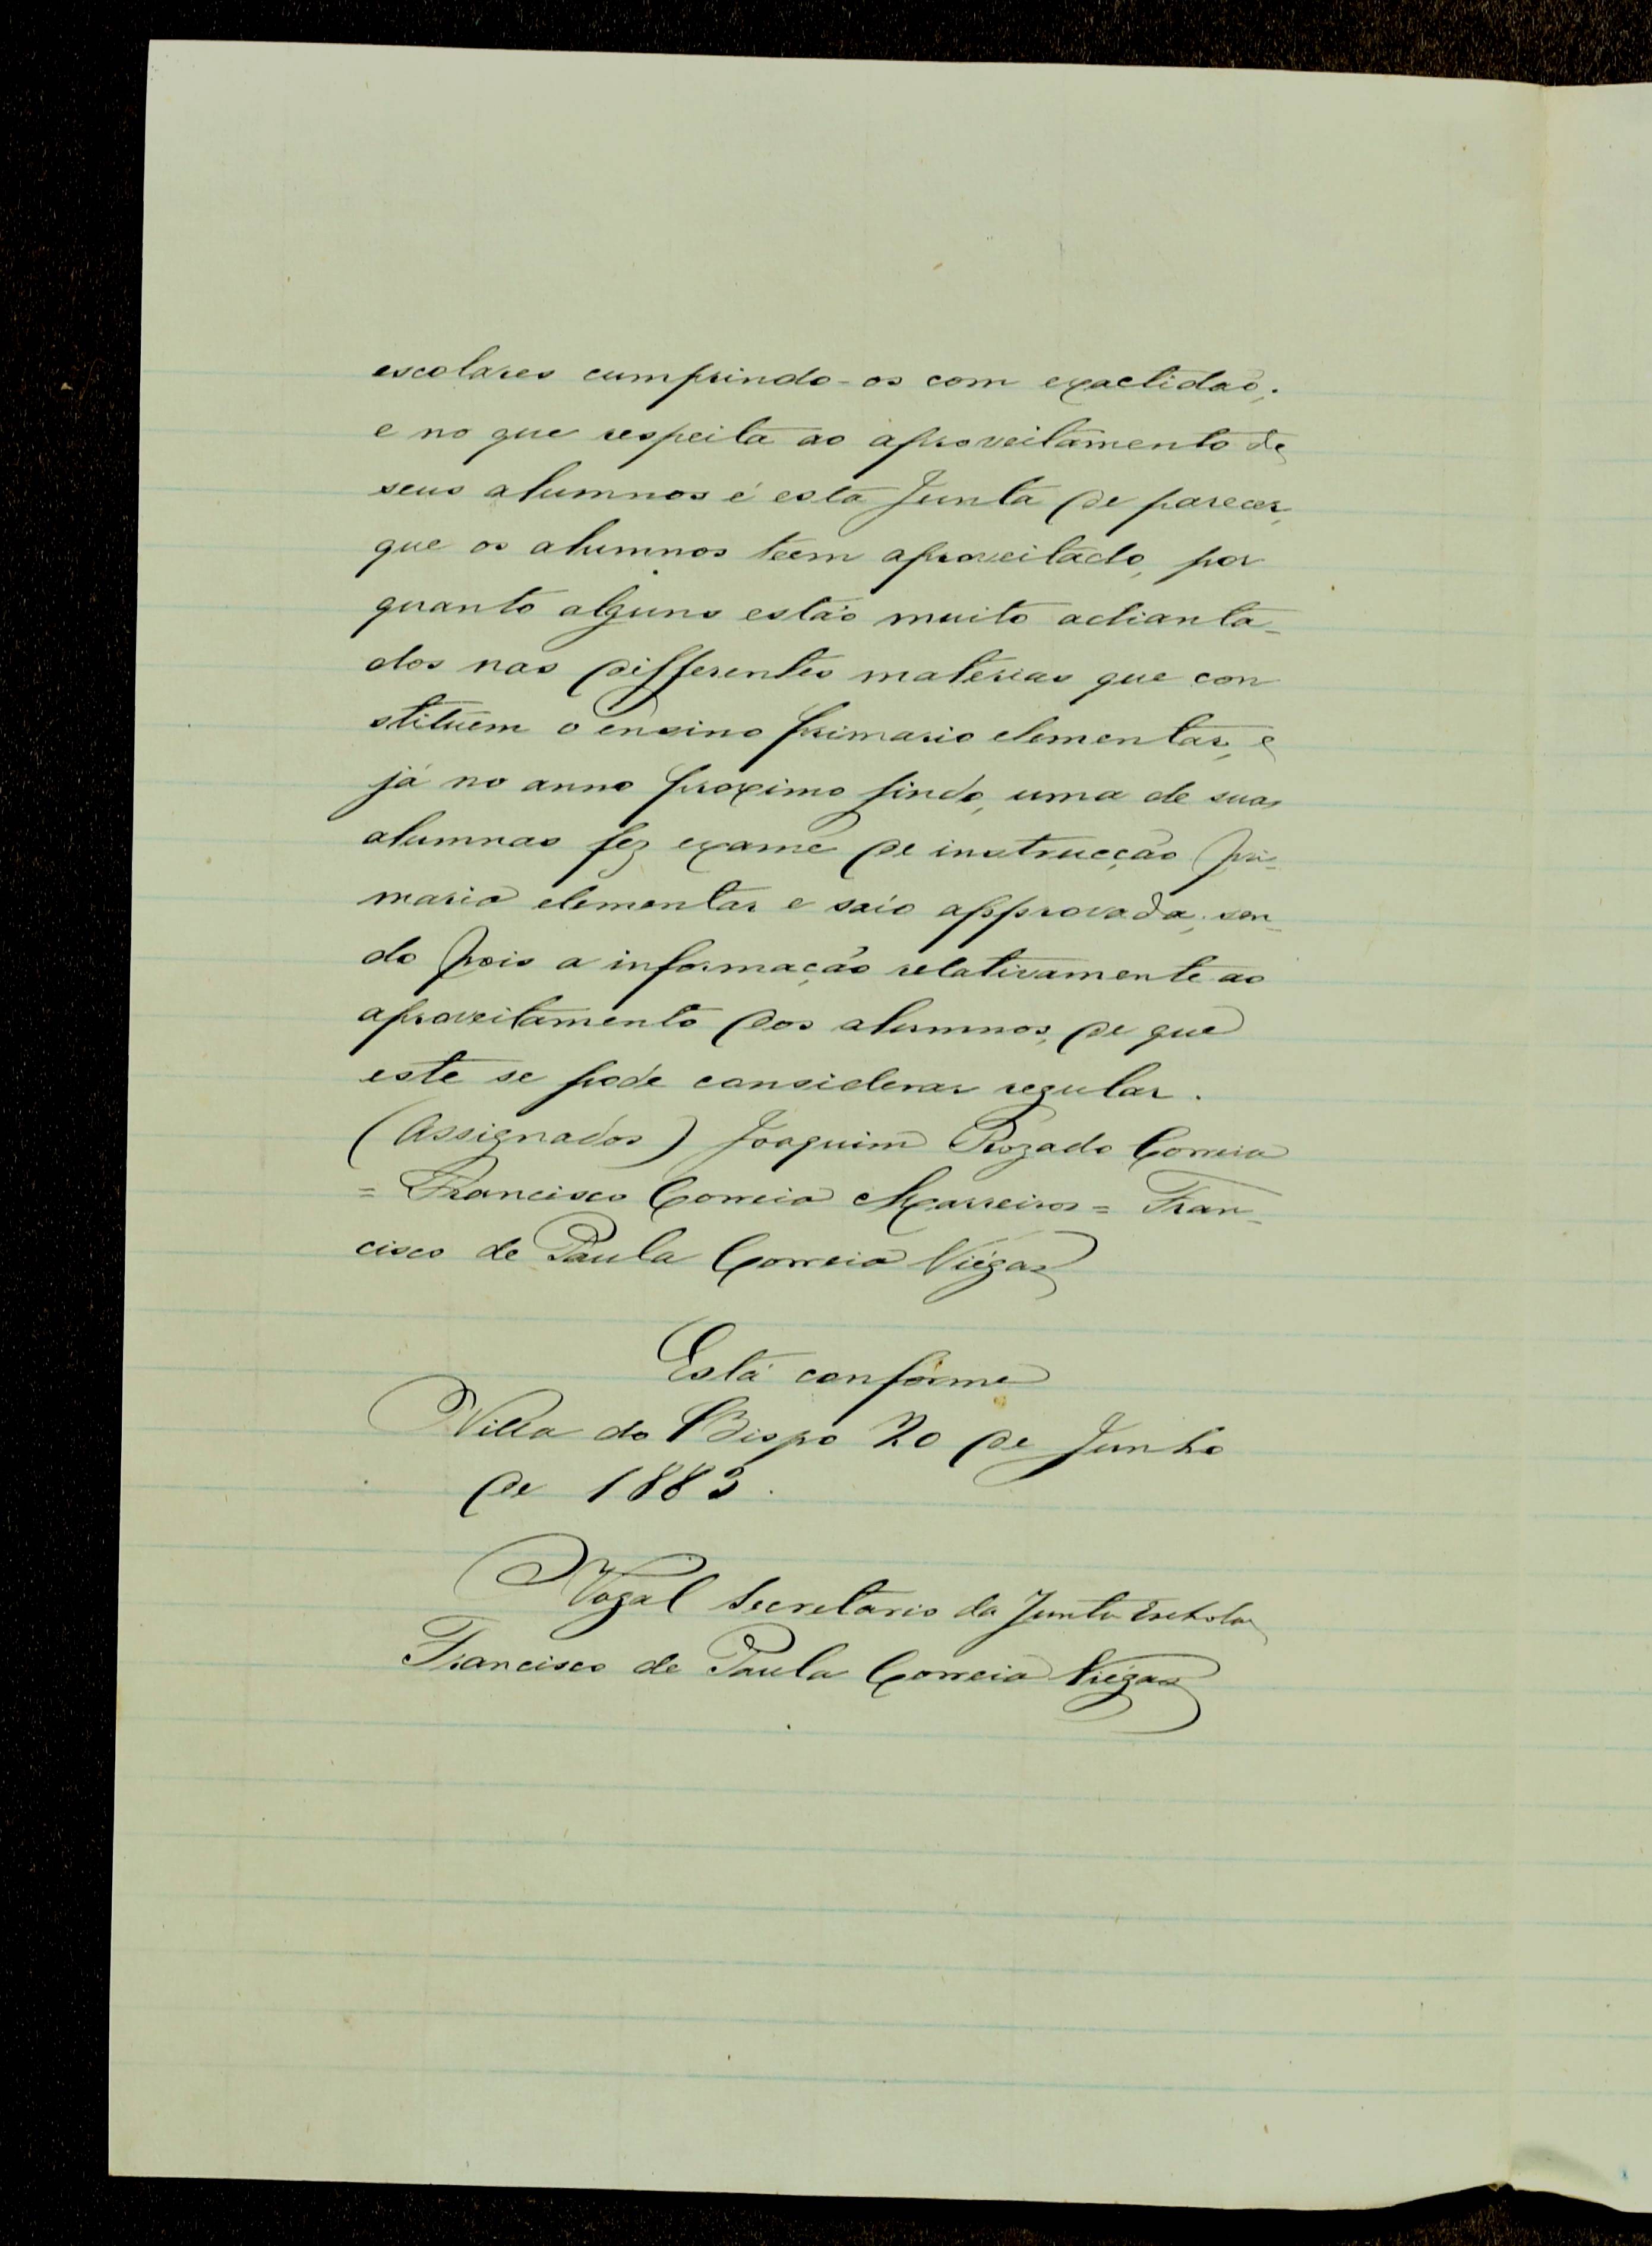 escolares cumprindo-os com exactidão;
e no que respeita ao aproveitamento de
seus alumnos é esta Junta de parecer,
que os alumnos teem aproveitado, por
quanto alguns estão muito adianta-
dos nas differentes materias que con
stituem o ensino primario elementar, e
já no anno proximo findo, uma de suas
alumnas fez exame de instrucção pri-
maria elementar e saío approvada; sen-
do pois a informação relativamente ao
aproveitamento dos alumnos, de que
este se pode considerar regular.
(Assignados) Joaquim Rozado Correia
= Francisco Correia Marreiros = Fran-
cisco de Paula Correia Viégas
Está conforme
Villa do Bispo 20 de Junho
de 1883.
O Vogal Secretario da Junta Escholar
Francisco de Paula Correia Viégas